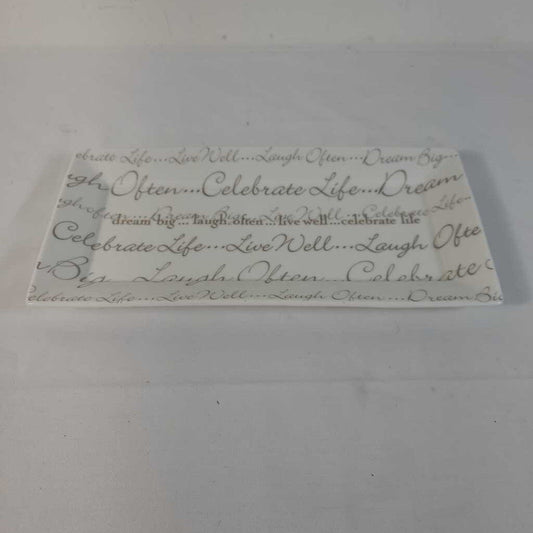 ebrate Life...Live Well...Laugh Often...Dream Big...
ugh Often...Celebrate Life...Dream
ugh often...Dream Big...Laugh Often...Live Well...Celebrate Life
dream big... laugh often...live well...celebrate life
Celebrate Life...Live Well...Laugh Ofte
Big...Laugh Often...Celebrate
Celebrate Life...Live Well...Laugh Often...Dream Big